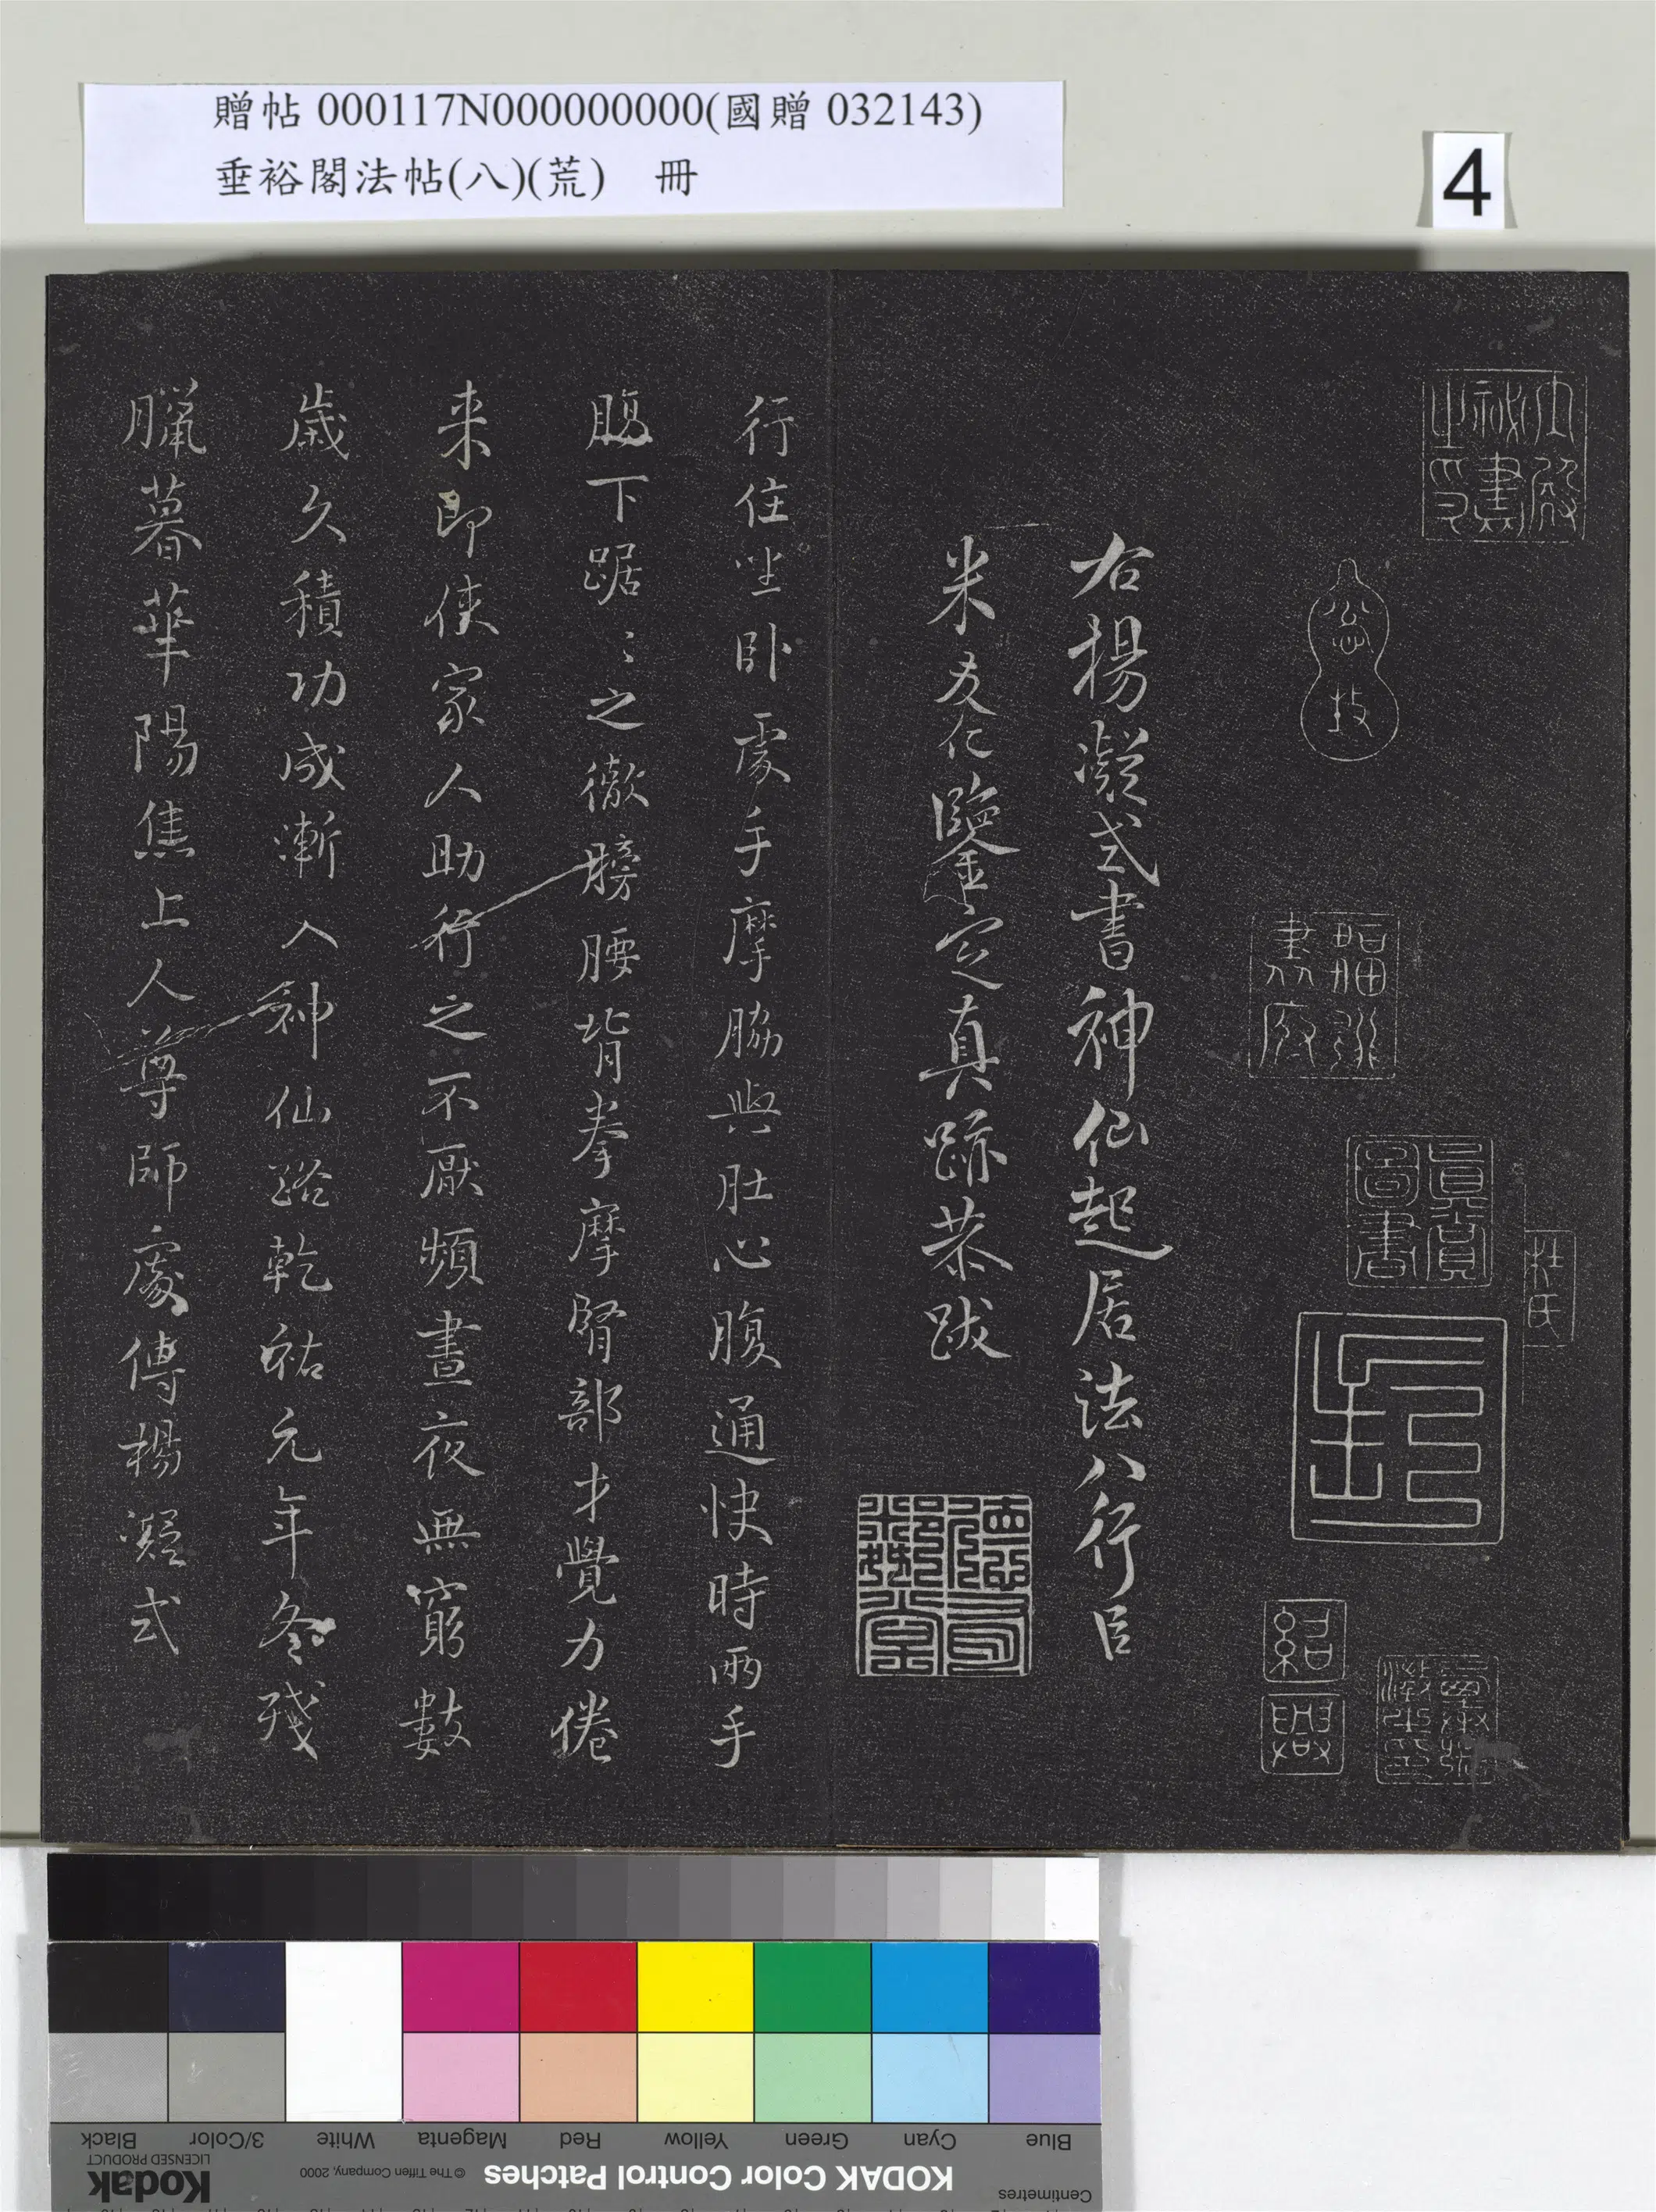 贈帖 000117N000000000(國贈 032143)
垂裕閣法帖(八)(荒) 冊
4
內殿秘書之印
杜氏
真賞
圖書
紹興
右楊凝式書神仙起居法八行臣
米友仁鑒定真跡恭跋
行住坐卧處手摩脇與肚心腹通快時兩手
膓下踞〻之徹膀腰背拳摩腎部才覺力倦
来即使家人助行之不厭頻晝夜無窮數
歲久積功成漸入神仙路乾祐元年冬殘
臘暮華陽焦上人尊師處傳楊凝式
Centimetres
Blue
Cyan
Green
Yellow
Red
Magenta
White
3/Color
Black
KODAK Color Control Patches
© The Tiffen Company, 2000
Kodak
LICENSED PRODUCT